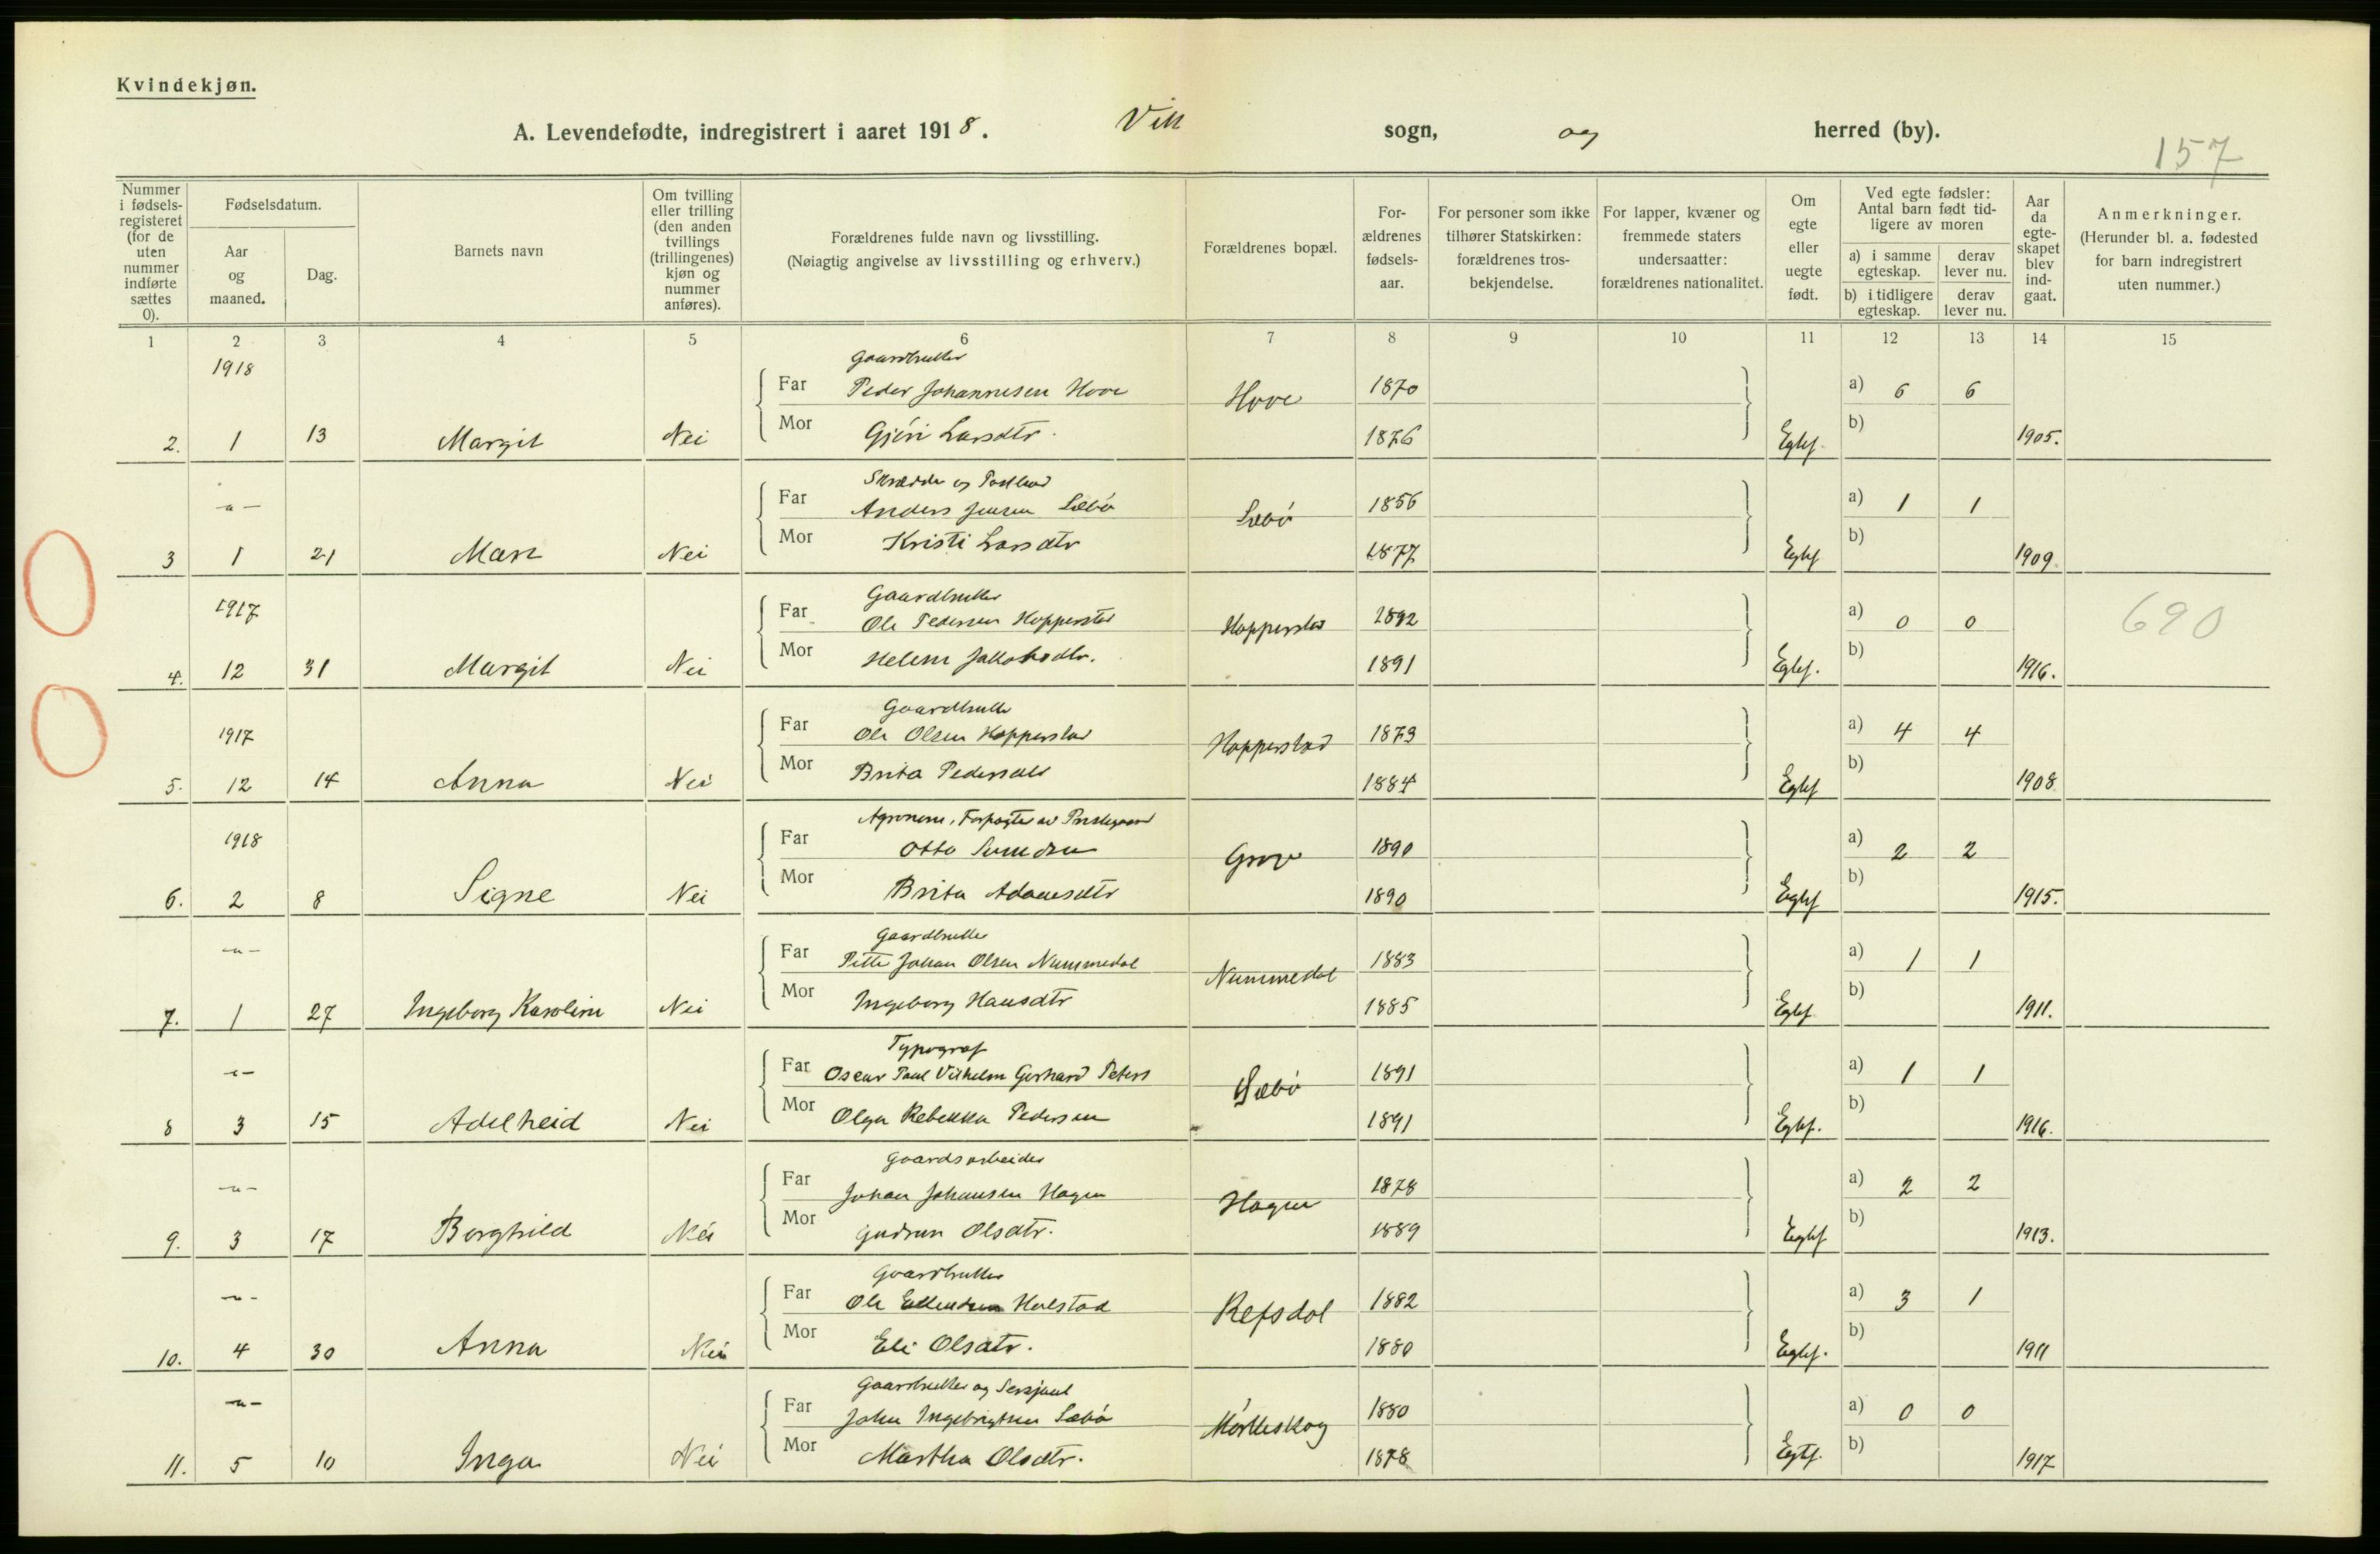 Kvindekjøn.
A. Levendefødte, indregistrert i aaret 1918. Vik sogn, og herred (by).
157
Nummer i fødsels-registeret (for de uten nummer indførte sættes 0).
Fødselsdatum.
Aar og maaned.
Dag.
Barnets navn
Om tvilling eller trilling (den anden tvillings (trillingenes) kjøn og nummer anføres).
Forældrenes fulde navn og livsstilling.
(Nøiagtig angivelse av livsstilling og erhverv.)
Forældrenes bopæl.
For-ældrenes fødsels-aar.
For personer som ikke tilhører Statskirken: forældrenes tros-bekjendelse.
For lapper, kvæner og fremmede staters undersaatter: forældrenes nationalitet.
Om egte eller uegte født.
Ved egte fødsler: Antal barn født tid-ligere av moren
a) i samme egteskap. derav lever nu.
b) i tidligere egteskap. derav lever nu.
Aar da egte-skapet blev ind-gaat.
Anmerkninger.
(Herunder bl. a. fødested for barn indregistrert uten nummer.)
1 2 3 4 5 6 7 8 9 10 11 12 13 14 15
1918 Gaardbruker
Far Peder Johannesen Hove Hove 1870 a) 6 6
2. 1 13 Margit Nei Mor Gjöri Larsdtr. 1876 Egtef. b) 1905.
-"- Skrædder og Postbud
Far Anders Jensen Sæbö Sæbö 1856 a) 1 1
3 1 21 Nei Mor Kristi Larsdtr 1877 Egtef b) 1909.
1917 Gaardbruker
Far Ole Pedersen Hopperstad Hopperstad 1892 a) 0 0 690
4. 12 31 Margit Nei Mor Helene Jakobsdtr. 1891 Egtef. b) 1916.
1917 Gaardbruker
Far Ole Olsen Hopperstad Hopperstad 1873 a) 4 4
5. 12 14 Anna Nei Mor Brita Pedersdtr 1884 Egtef b) 1908
1918 Agronom, Forpagter av Prestegaard
Far Otto 1890 a) 2 2
6. 2 8 Signe Nei Mor Brita Adamsdtr 1890 Egtef b) 1915.
-"- Gaardbruker
Far Petter Johan Olsen Nummedal Nummedal 1883 a) 1 1
7. 1 27 Ingeborg Karoline Nei Mor Ingeborg Hansdtr 1885 Egtef b) 1911.
-"- Typograf
Far Oscar Paul Vilhelm Gerhard Peters Sæbö 1891 a) 1 1
8 3 15 Adelheid Nei Mor Olga Rebekka Pedersen 1891 Egtef. b) 1916.
-"- Gaardsarbeider
Far Johan Johansen Hagen Hagen 1878 a) 2 2
9. 3 17 Borghild Nei Mor Gudrun Olsdtr. 1889 Egtef b) 1913.
-"- Gaardbruker
Far Ole Ellendsen Halstad Refsdal 1882 a) 3 1
10. 4 30 Anna Nei Mor Eli Olsdtr. 1880 Egtef. b) 1911
-"- Gaardbruker og Sersjant
Far John Ingebrigtsen Sæbö 1880 a) 0 0
11. 5 10 Inga Nei Mor Martha Olsdtr. 1878 Egtf. b) 1917